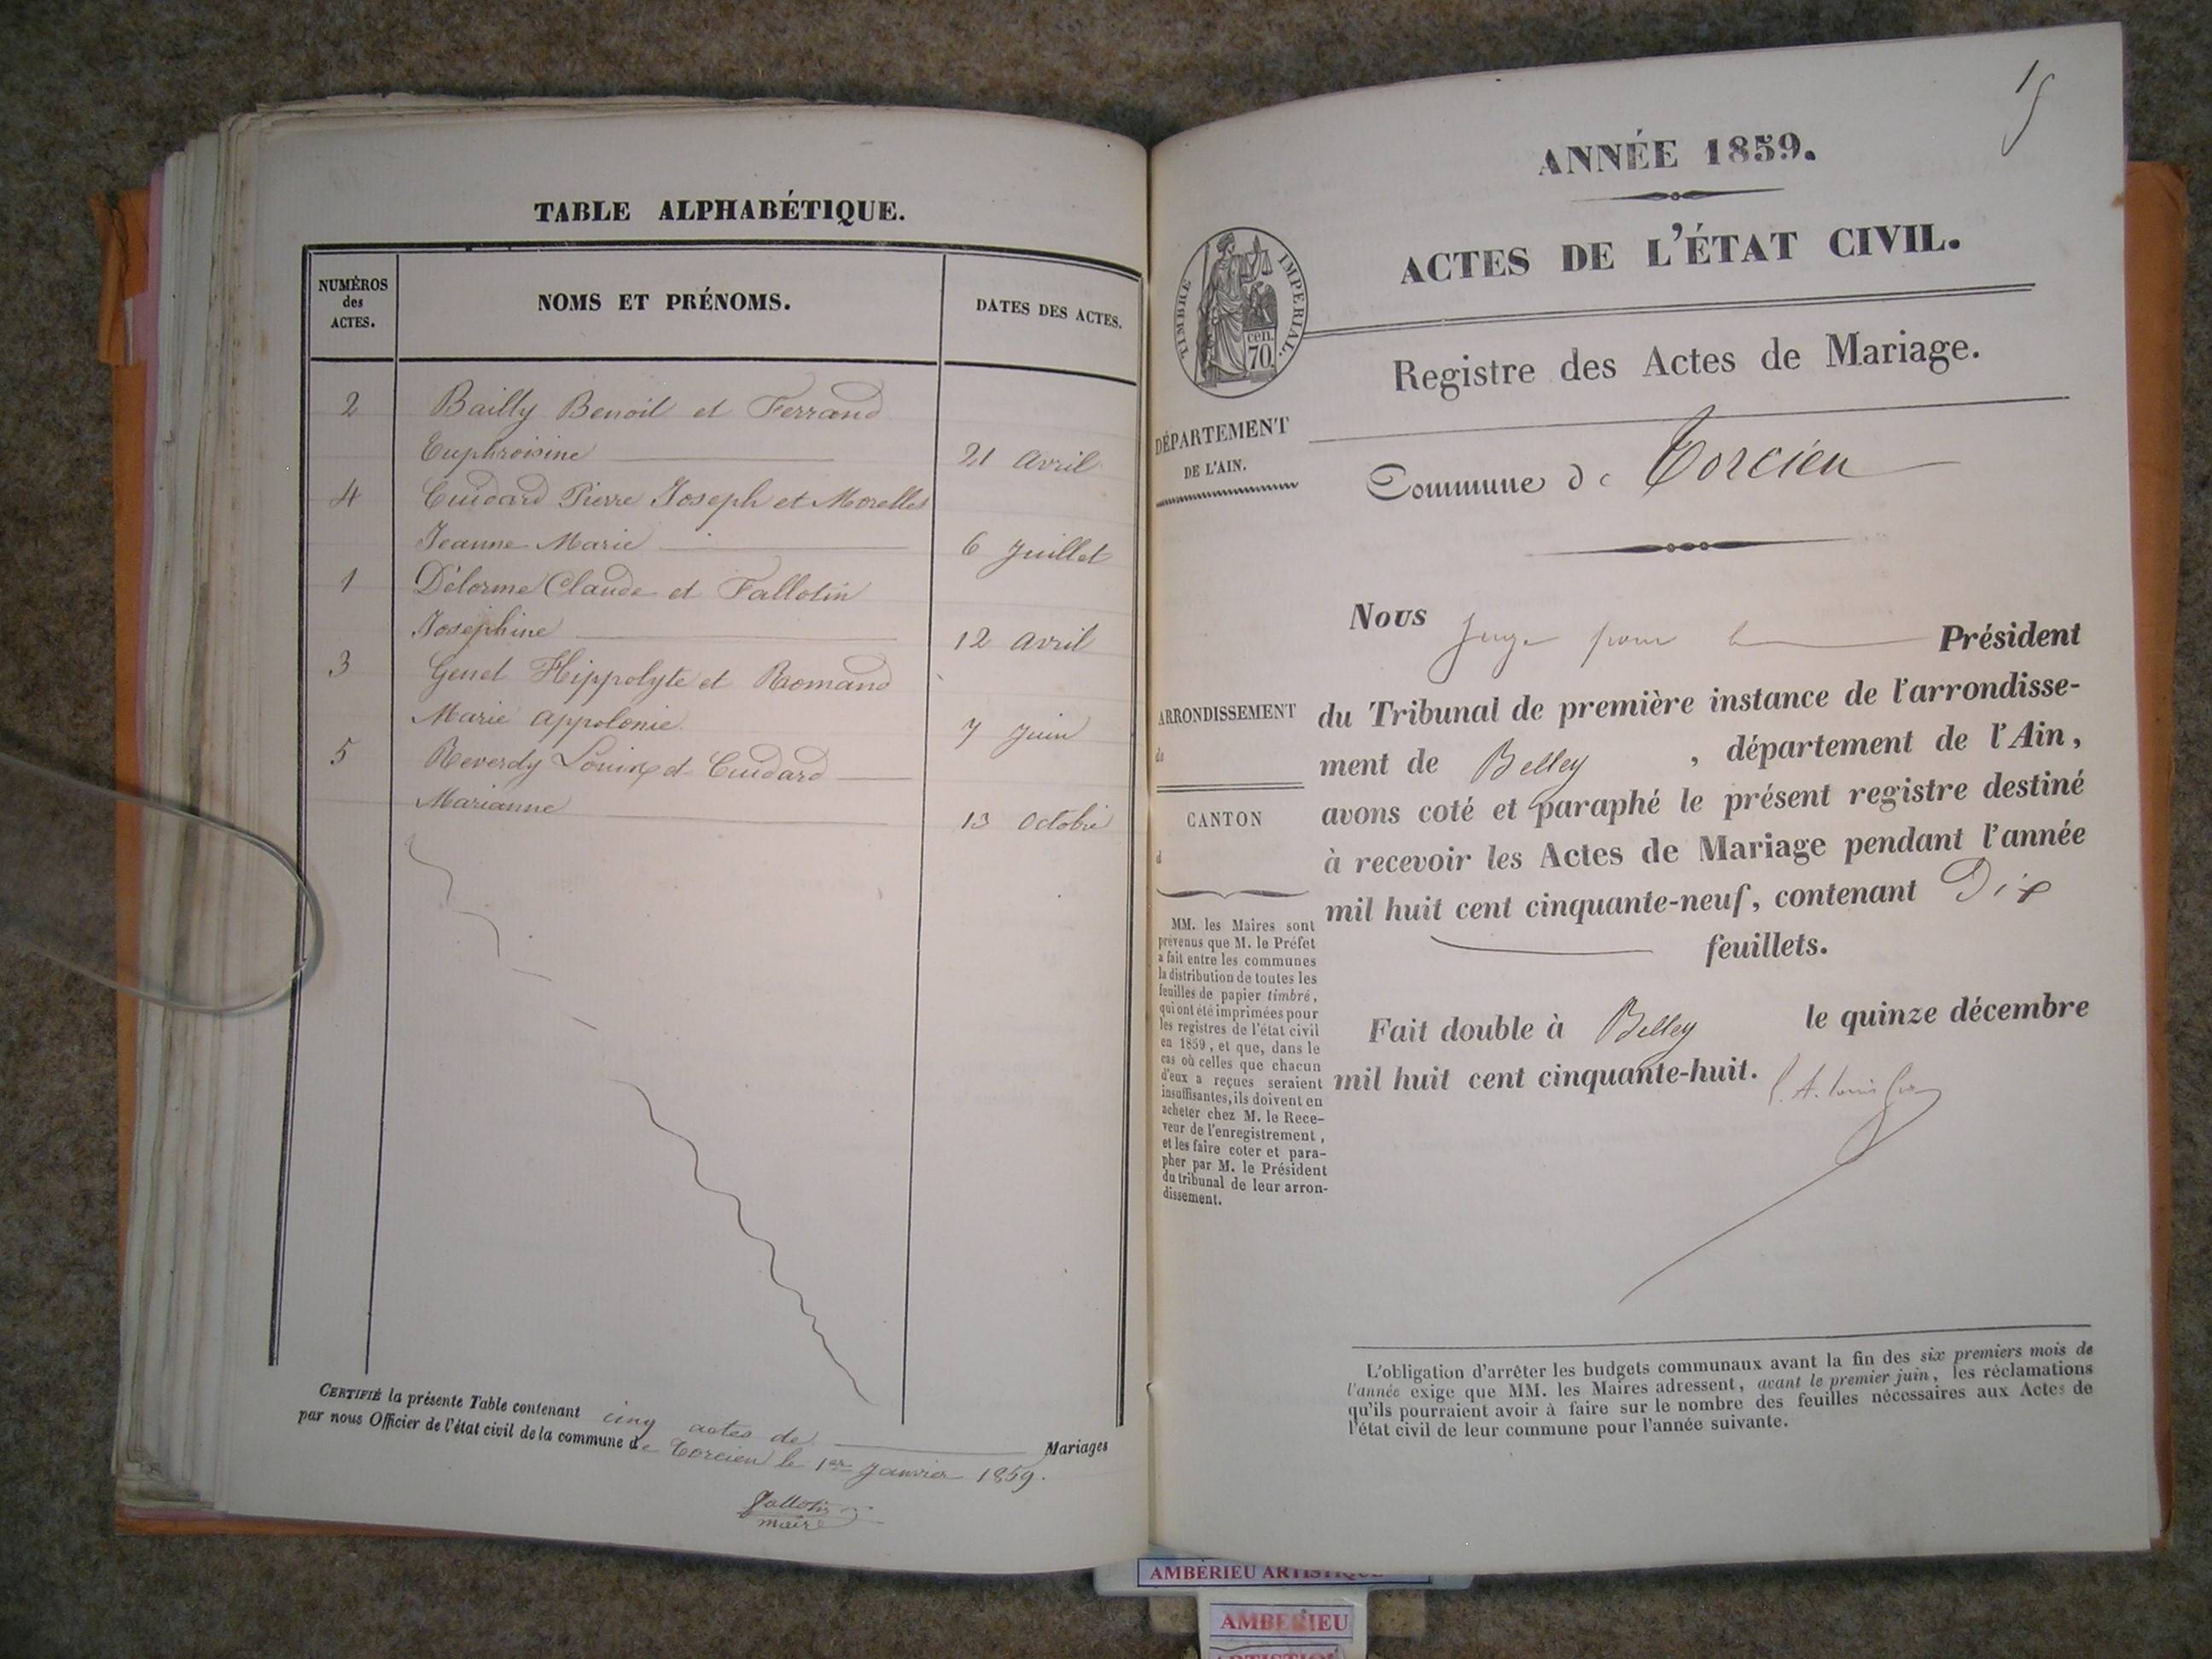 TABLE ALPHABÉTIQUE.
NUMÉROS
des
ACTES.
NOMS ET PRÉNOMS.
DATES DES ACTES.
2 Bailly Benoit et Ferrand
Euphroisine 21 Avril
4 Cuidard Pierre Joseph et Morelles
Jeanne Marie 6 Juillet
1 Délorme Claude et Fallotin
Joséphine 12 Avril
3 Genet Hippolyte et Romand
Marie Appolonie 7 Juin
5 Reverdy et Cuidard
Marianne 13 Octobre
CERTIFIÉ la présente Table contenant cinq actes de Mariages
par nous Officier de l'état civil de la commune de Torcieu le 1er Janvier 1859.
Fallotin
maire
ANNÉE 1859.
ACTES DE L'ÉTAT CIVIL.
TIMBRE IMPERIAL.
cen.
70
Registre des Actes de Mariage.
DÉPARTEMENT
DE L'AIN.
Commune de Torcieu
Nous Juge pour le Président
du Tribunal de première instance de l'arrondisse-
ment de Belley, département de l'Ain,
avons coté et paraphé le présent registre destiné
à recevoir les Actes de Mariage pendant l'année
mil huit cent cinquante-neuf, contenant Dix
feuillets.
Fait double à Belley le quinze décembre
mil huit cent cinquante-huit.
ARRONDISSEMENT
de
CANTON
d
MM. les Maires sont
prévenus que M. le Préfet
a fait entre les communes
la distribution de toutes les
feuilles de papier timbré,
qui ont été imprimées pour
les registres de l'état civil
en 1859, et que, dans le
cas où celles que chacun
d'eux a reçues seraient
insuffisantes, ils doivent en
acheter chez M. le Rece-
veur de l'enregistrement,
et les faire coter et para-
pher par M. le Président
du tribunal de leur arron-
dissement.
L'obligation d'arrêter les budgets communaux avant la fin des six premiers mois de
l'année exige que MM. les Maires adressent, avant le premier juin, les réclamations
qu'ils pourraient avoir à faire sur le nombre des feuilles nécessaires aux Actes de
l'état civil de leur commune pour l'année suivante.
AMBERIEU ARTISTIQUE
AMBERIEU
ARTISTIQUE